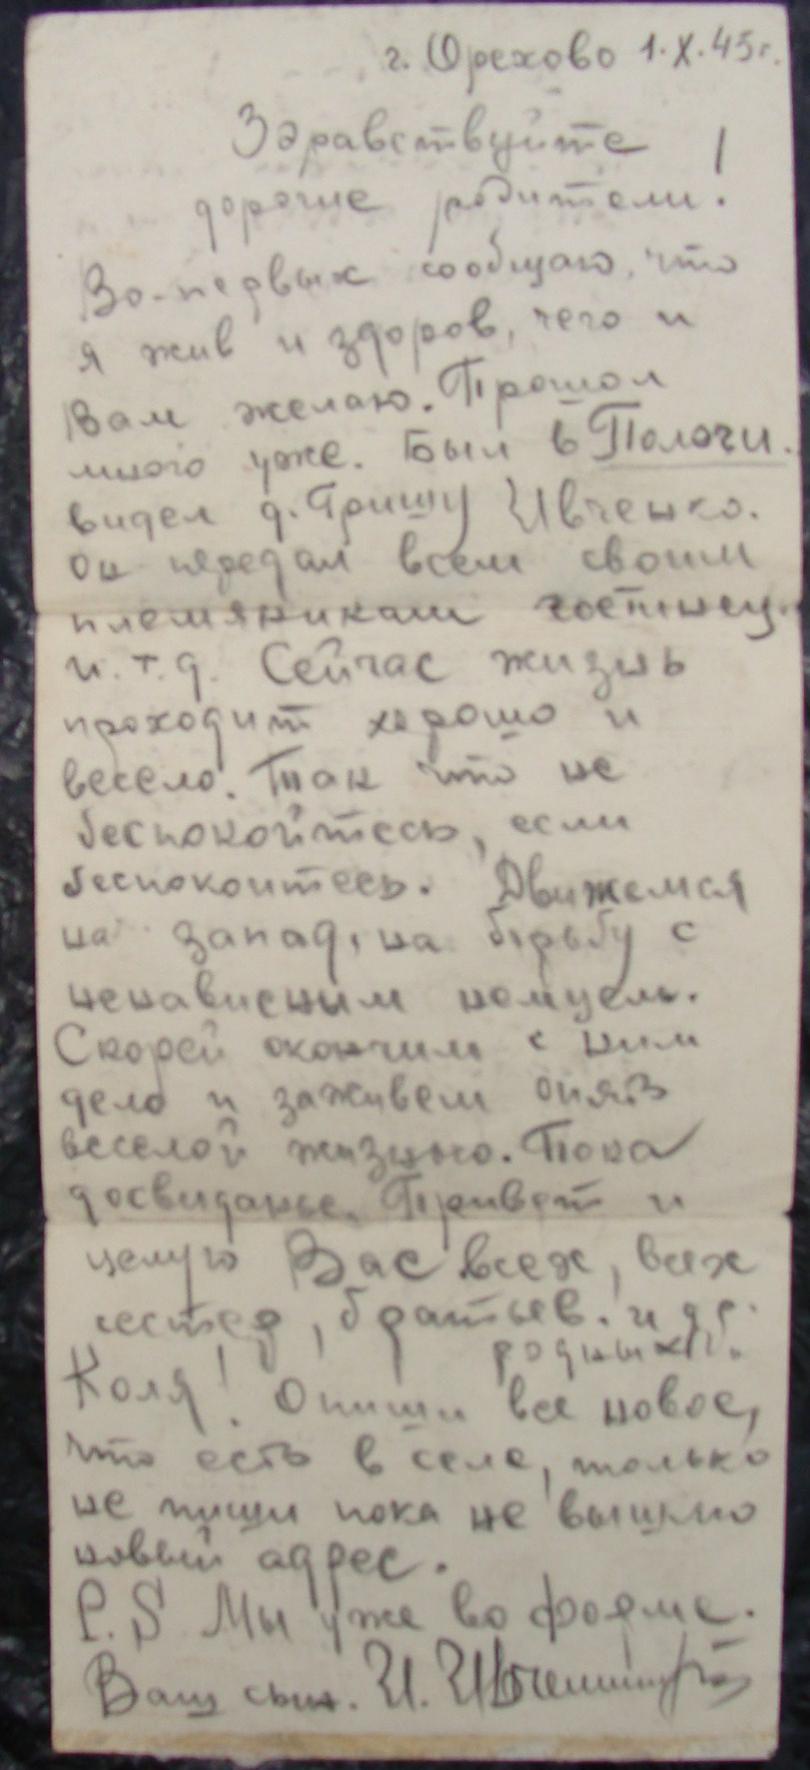 г. Орехово 1.X.45г.
Здравствуйте
дорогие родители!
Во-первых сообщаю, что
я жив и здоров, чего и
Вам желаю. Прошол
много уже. Был в Пологи.
видел д. Гришу Ивченко.
он передал всем своим
племяникам гостинец.
и.т.д. Сейчас жизнь
проходит хорошо и
весело. Так что не
беспокойтесь, если
беспокоитесь. Движемся
на запад, на борьбу с
ненависным немцем.
Скорей окончим с ним
дело и заживем опять
веселой жизнью. Пока
досвиданье. Привет и
целую Вас всех, всех
сестер, братьев. и др.
родных.
Коля! Опиши все новое,
что есть в селе, только
не пиши пока не вышлю
новый адрес.
P.S Мы уже во форме.
Ваш сын. И.